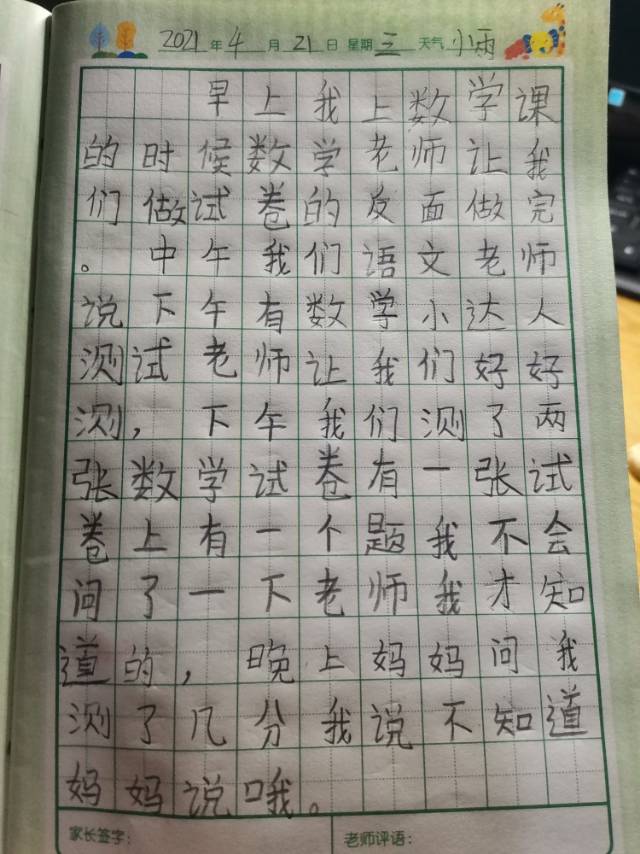 2021年4月21日 星期三 天气小雨
早上我上数学课
的时候数学老师让我
们做试卷的反面做完
。中午我们语文老师
说下午有数学小达人
测试老师让我们好好
测,下午我们测了两
张数学试卷有一张试
卷上有一个题我不会
问了一下老师我才知
道的,晚上妈妈问我
测了几分我说不知道
妈妈说哦。
家长签字: 老师评语: